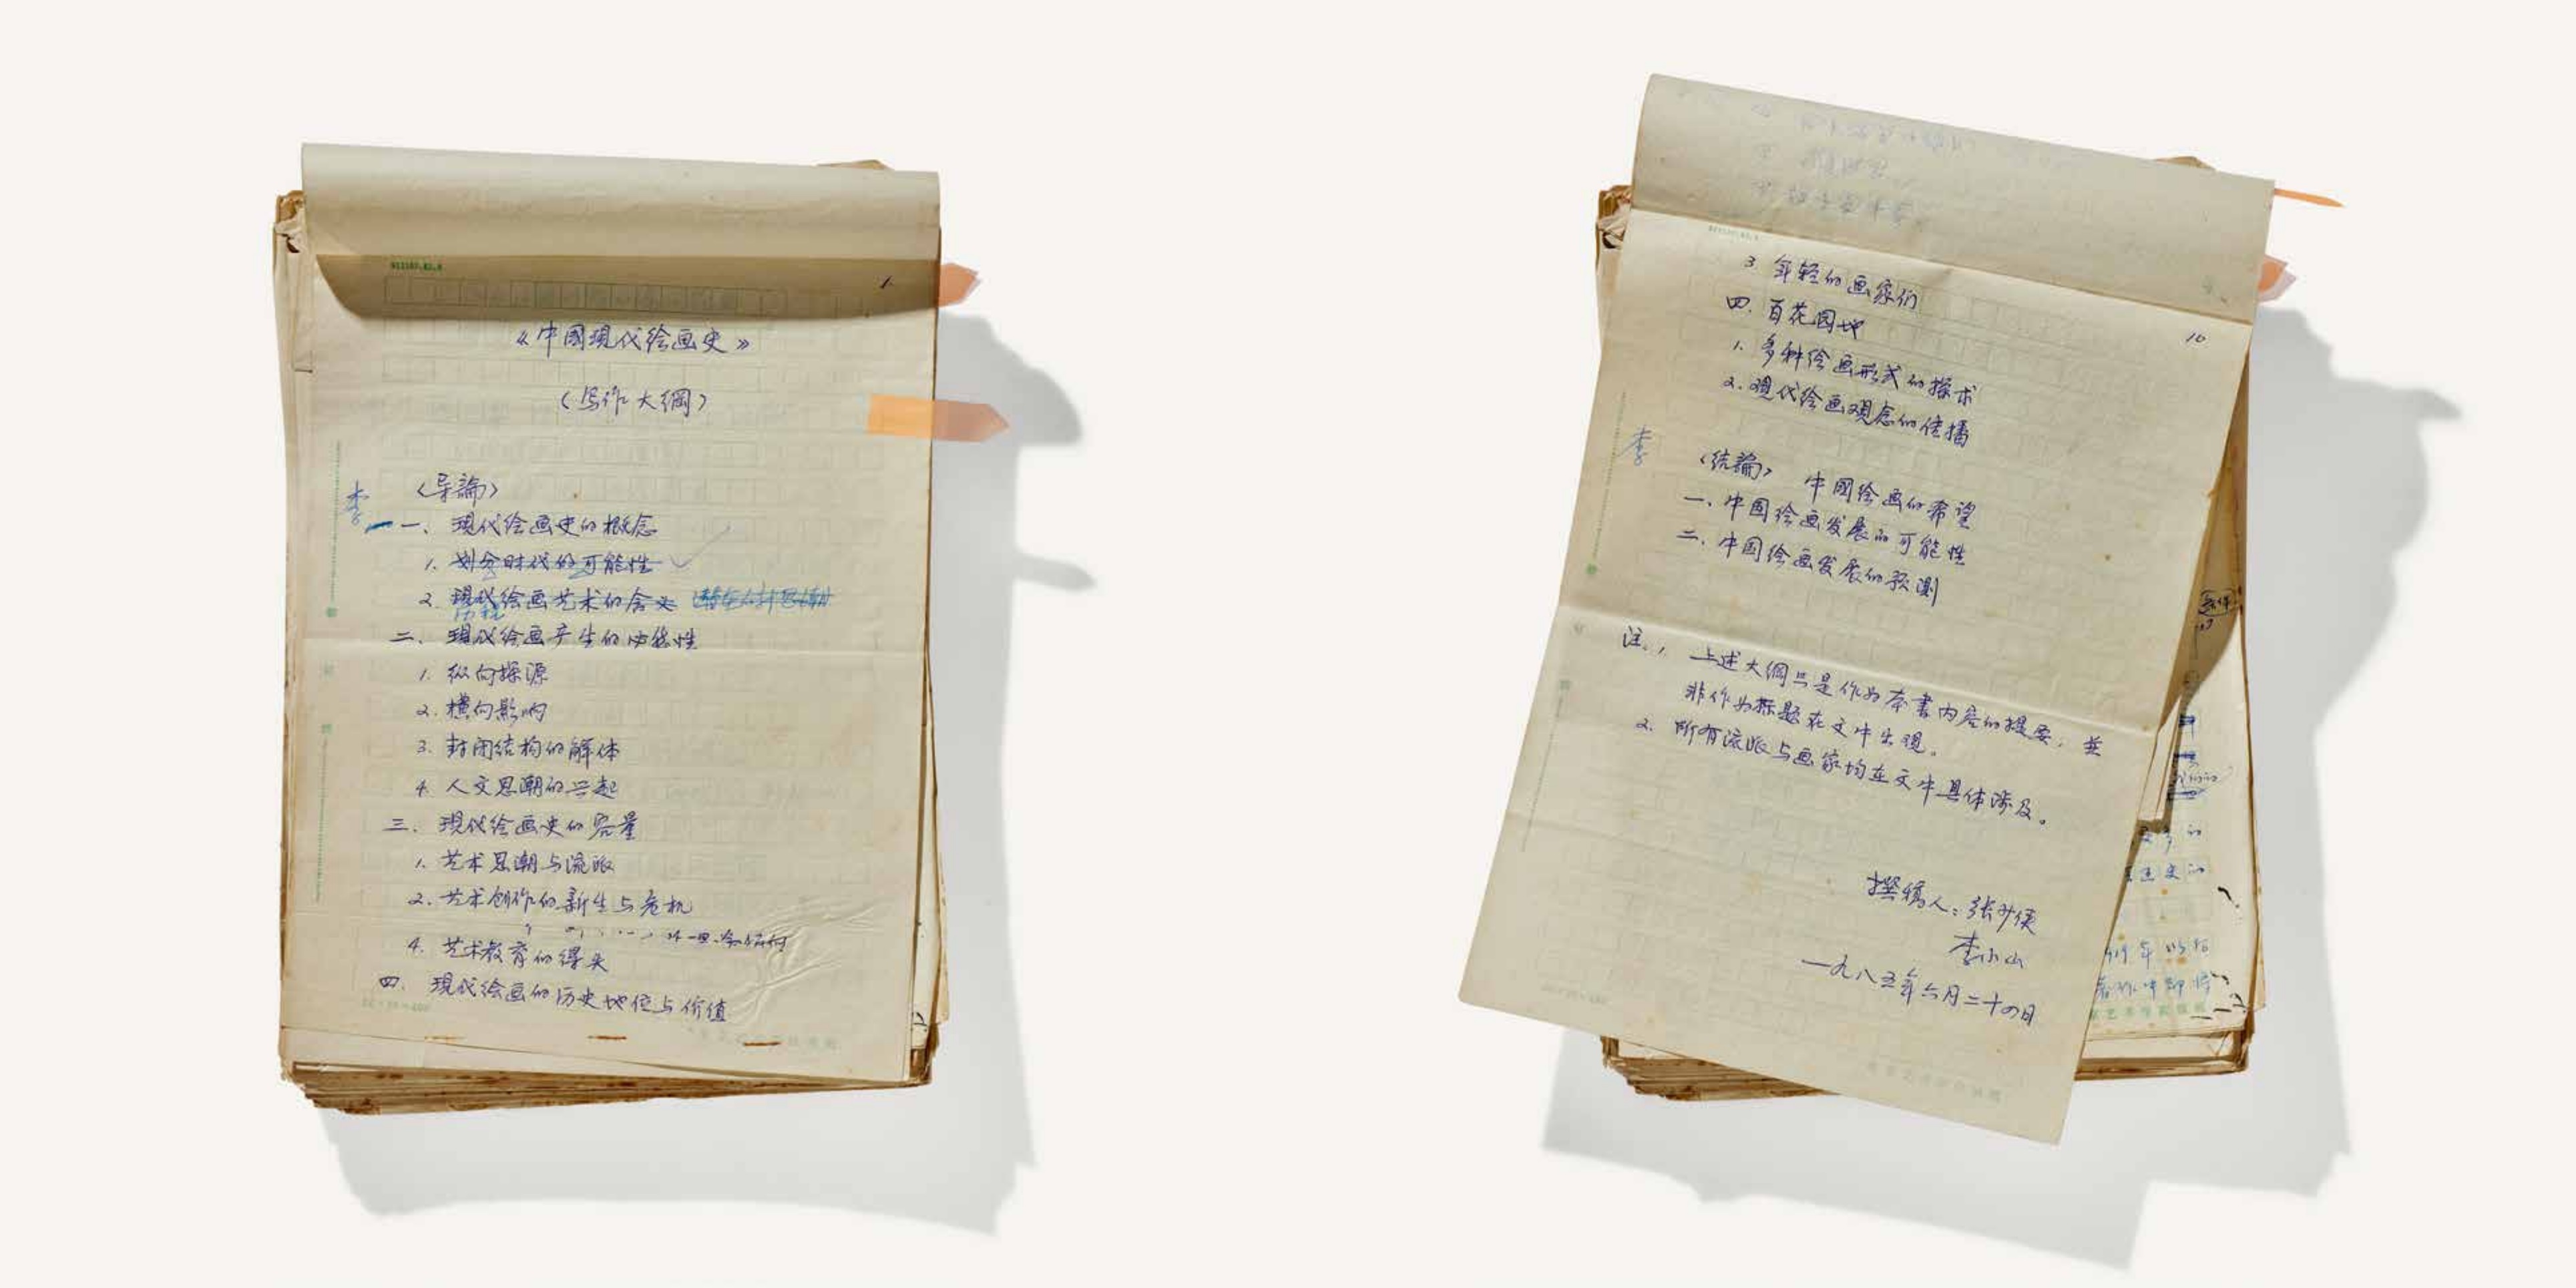 1
《中國現代绘画史》
（写作大綱）
〈导論〉
李
一、現代绘画史的概念
1. 划分时代的可能性
2. 現代绘画艺术的含义
二、現代绘画产生的必然性
1. 纵向探源
2. 横向影响
3. 封闭结构的解体
4. 人文思潮的兴起
三、現代绘画史的容量
1. 艺术思潮与流派
2. 艺术创作的新生与危机
4. 艺术教育的得失
四、現代绘画的历史地位与价值
10
3 年轻的画家们
四. 百花园地
1. 多种绘画形式的探求
2. 現代绘画观念的传播
李
〈结論〉 中國绘画的希望
一、中國绘画发展的可能性
二、中国绘画发展的预测
注：1 上述大綱只是作为本書内容的提要，並
非作为标题在文中出現。
2. 所有流派与画家均在文中具体涉及。
撰稿人：张少侠
李小山
一九八五年六月二十四日